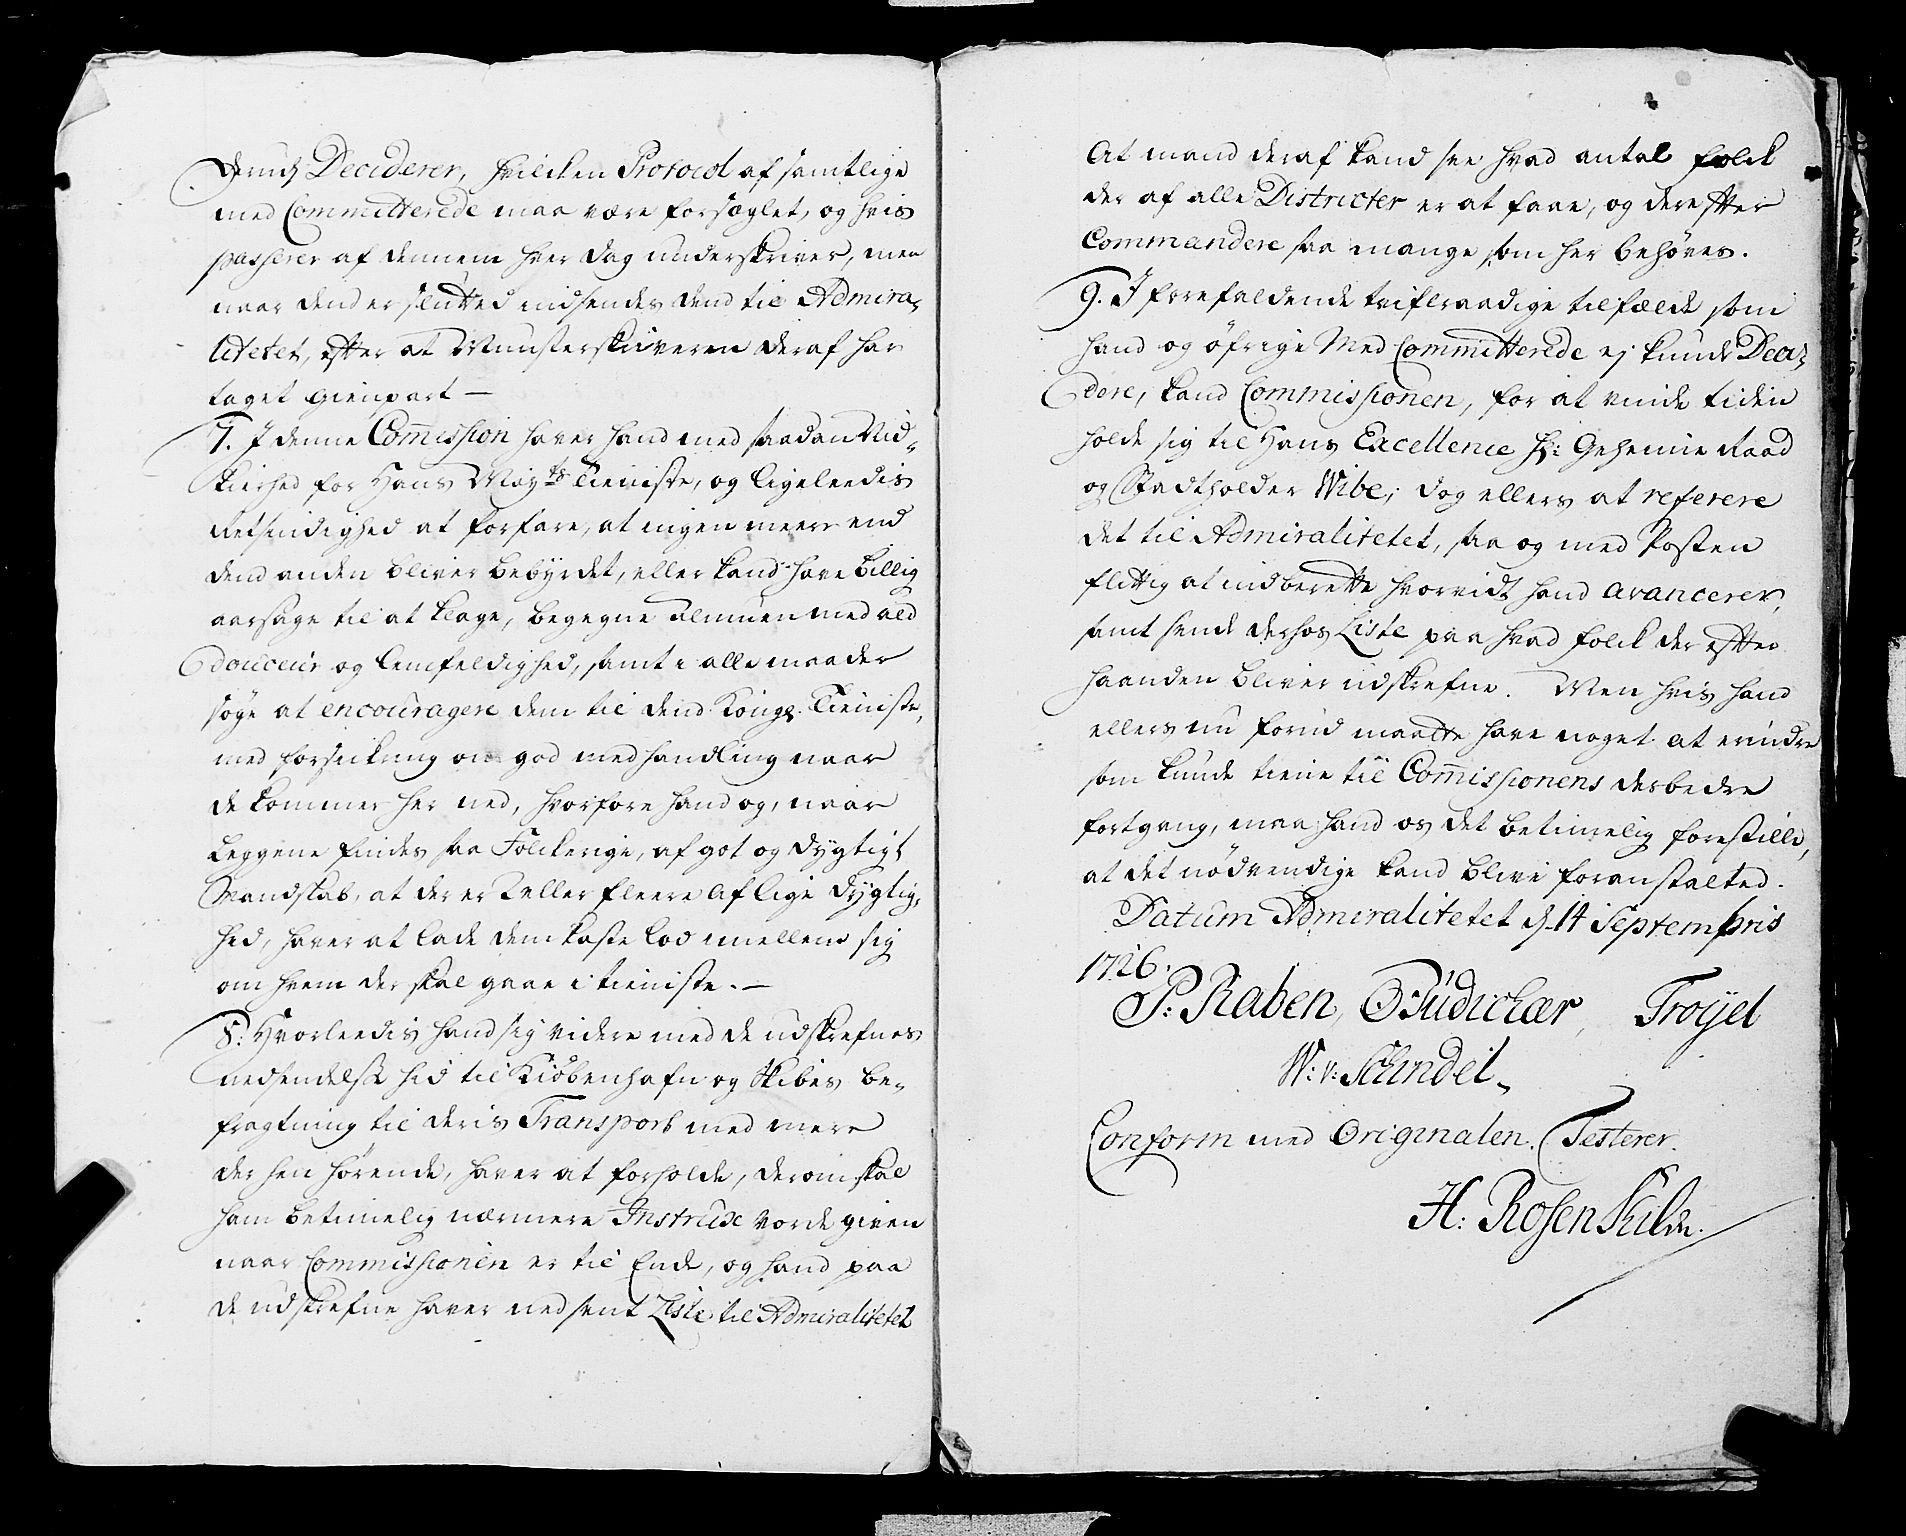 Deciderer, hvilcken Protocol af samtlige
med Committerede maa være forseglet, og hvis
passerer af dennem hver dag underskriver, men
naar dend er slutted indsendes dend til Admira-
litetet, efter at Munsterskriveren deraf har
taget gienpart —
7. I denne Commission haver hand med saadan Nid-
kierhed for Hans May:ts Tieniste, og ligeleedis
Retsindighed at forfare, at ingen meere end
dend anden bliver bebyrdet, eller kand have billig
aarsage til at klage, begegne Almuen med ald
douceur og lemfeldighed, samt i alle maader
søge at encouragere dem til dend Kongl. Tieniste,
med forsickring om god medhandling naar
de kommer her ned, hvorfore hand og, naar
Leggene findes saa Folckerige, af got og dygtigt
Mandskab, at der er 2 eller fleere af lige dygtig-
hed, haver at lade dem kaste lod imellem sig
om hvem der skal gaae i tieniste. —
8. Hvorleedis hand sig videre med de udskrefnes
nedsendelse hid til Kiøbenhafn og Skibes be-
fragtning til deris Transport med mere
der hen hørende, haver at forholde, derom skal
ham betimelig nærmere Instrux vorde given
naar Commissionen er til Ende, og hand paa
de udskrefne haver nedsent Liste til Admiralitetet
At mand deraf kand see hvad antal folck
der af alle Districter er at faae, og derefter
Commandere saa mange som her behøves.
9. I forefaldende tvilraadige tilfælde som
hand og øfrige Med Committerede ej kunde Deci-
dere, kand Commissionen, for at vinde tiden
holde sig til Hans Excellence Hr: Geheime Raad
og Stadtholder Wibe; dog ellers at referere
det til Admiralitetet, saa og med Posten
flittig at indberette hvorvidt hand avancerer,
samt sende derhos Liste paa hvad folck der efter
haanden bliver udskrefne. Men hvis hand
ellers nu forud maatte have noget at erindre
som kunde tiene til Commissionens desbedre
fortgang, maa hand os det betimelig forestille,
at det nødvendige kand blive foranstalted.
Datum Admiralitetet d. 14 Septembris
1726.
P: Raben, O Judichær, Trojel
W: v: Schindel
Conform med Originalen. Testerer.
H: Rosenskilde.